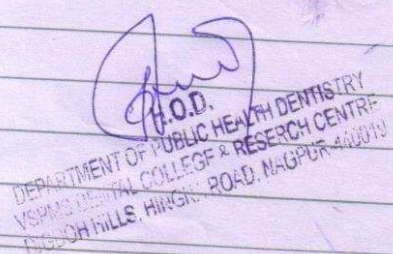 H.O.D.
DEPARTMENT OF PUBLIC HEALTH DENTISTRY
VSPM'S DENTAL COLLEGE & RESERCH CENTRE
DIGDOH HILLS, HINGNA ROAD, NAGPUR-440019